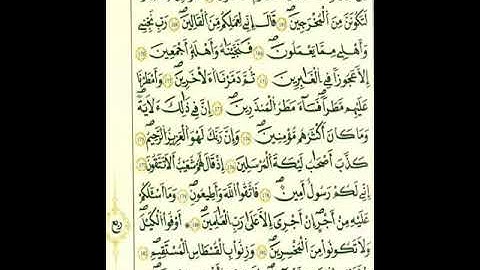 لَتَكُونَنَّ مِنَ ٱلْمُخْرَجِينَ قَالَ إِنِّي لِعَمَلِكُم مِّنَ ٱلْقَالِينَ رَبِّ نَجِّنِي
وَأَهْلِي مِمَّا يَعْمَلُونَ فَنَجَّيْنَٰهُ وَأَهْلَهُۥ أَجْمَعِينَ
إِلَّا عَجُوزًا فِي ٱلْغَٰبِرِينَ ثُمَّ دَمَّرْنَا ٱلْأَخَرِينَ وَأَمْطَرْنَا
عَلَيْهِم مَّطَرًا فَسَآءَ مَطَرُ ٱلْمُنذَرِينَ إِنَّ فِي ذَٰلِكَ لَأٓيَةً
وَمَا كَانَ أَكْثَرُهُم مُّؤْمِنِينَ وَإِنَّ رَبَّكَ لَهُوَ ٱلْعَزِيزُ ٱلرَّحِيمُ
كَذَّبَ أَصْحَٰبُ لَيْكَةَ ٱلْمُرْسَلِينَ إِذْ قَالَ لَهُمْ شُعَيْبٌ أَلَا تَتَّقُونَ
إِنِّي لَكُمْ رَسُولٌ أَمِينٌ فَٱتَّقُوا۟ ٱللَّهَ وَأَطِيعُونِ وَمَآ أَسْـَٔلُكُمْ
عَلَيْهِ مِنْ أَجْرٍ إِنْ أَجْرِيَ إِلَّا عَلَىٰ رَبِّ ٱلْعَٰلَمِينَ أَوْفُوا۟ ٱلْكَيْلَ
وَلَا تَكُونُوا۟ مِنَ ٱلْمُخْسِرِينَ وَزِنُوا۟ بِٱلْقُسْطَاسِ ٱلْمُسْتَقِيمِ
ربع